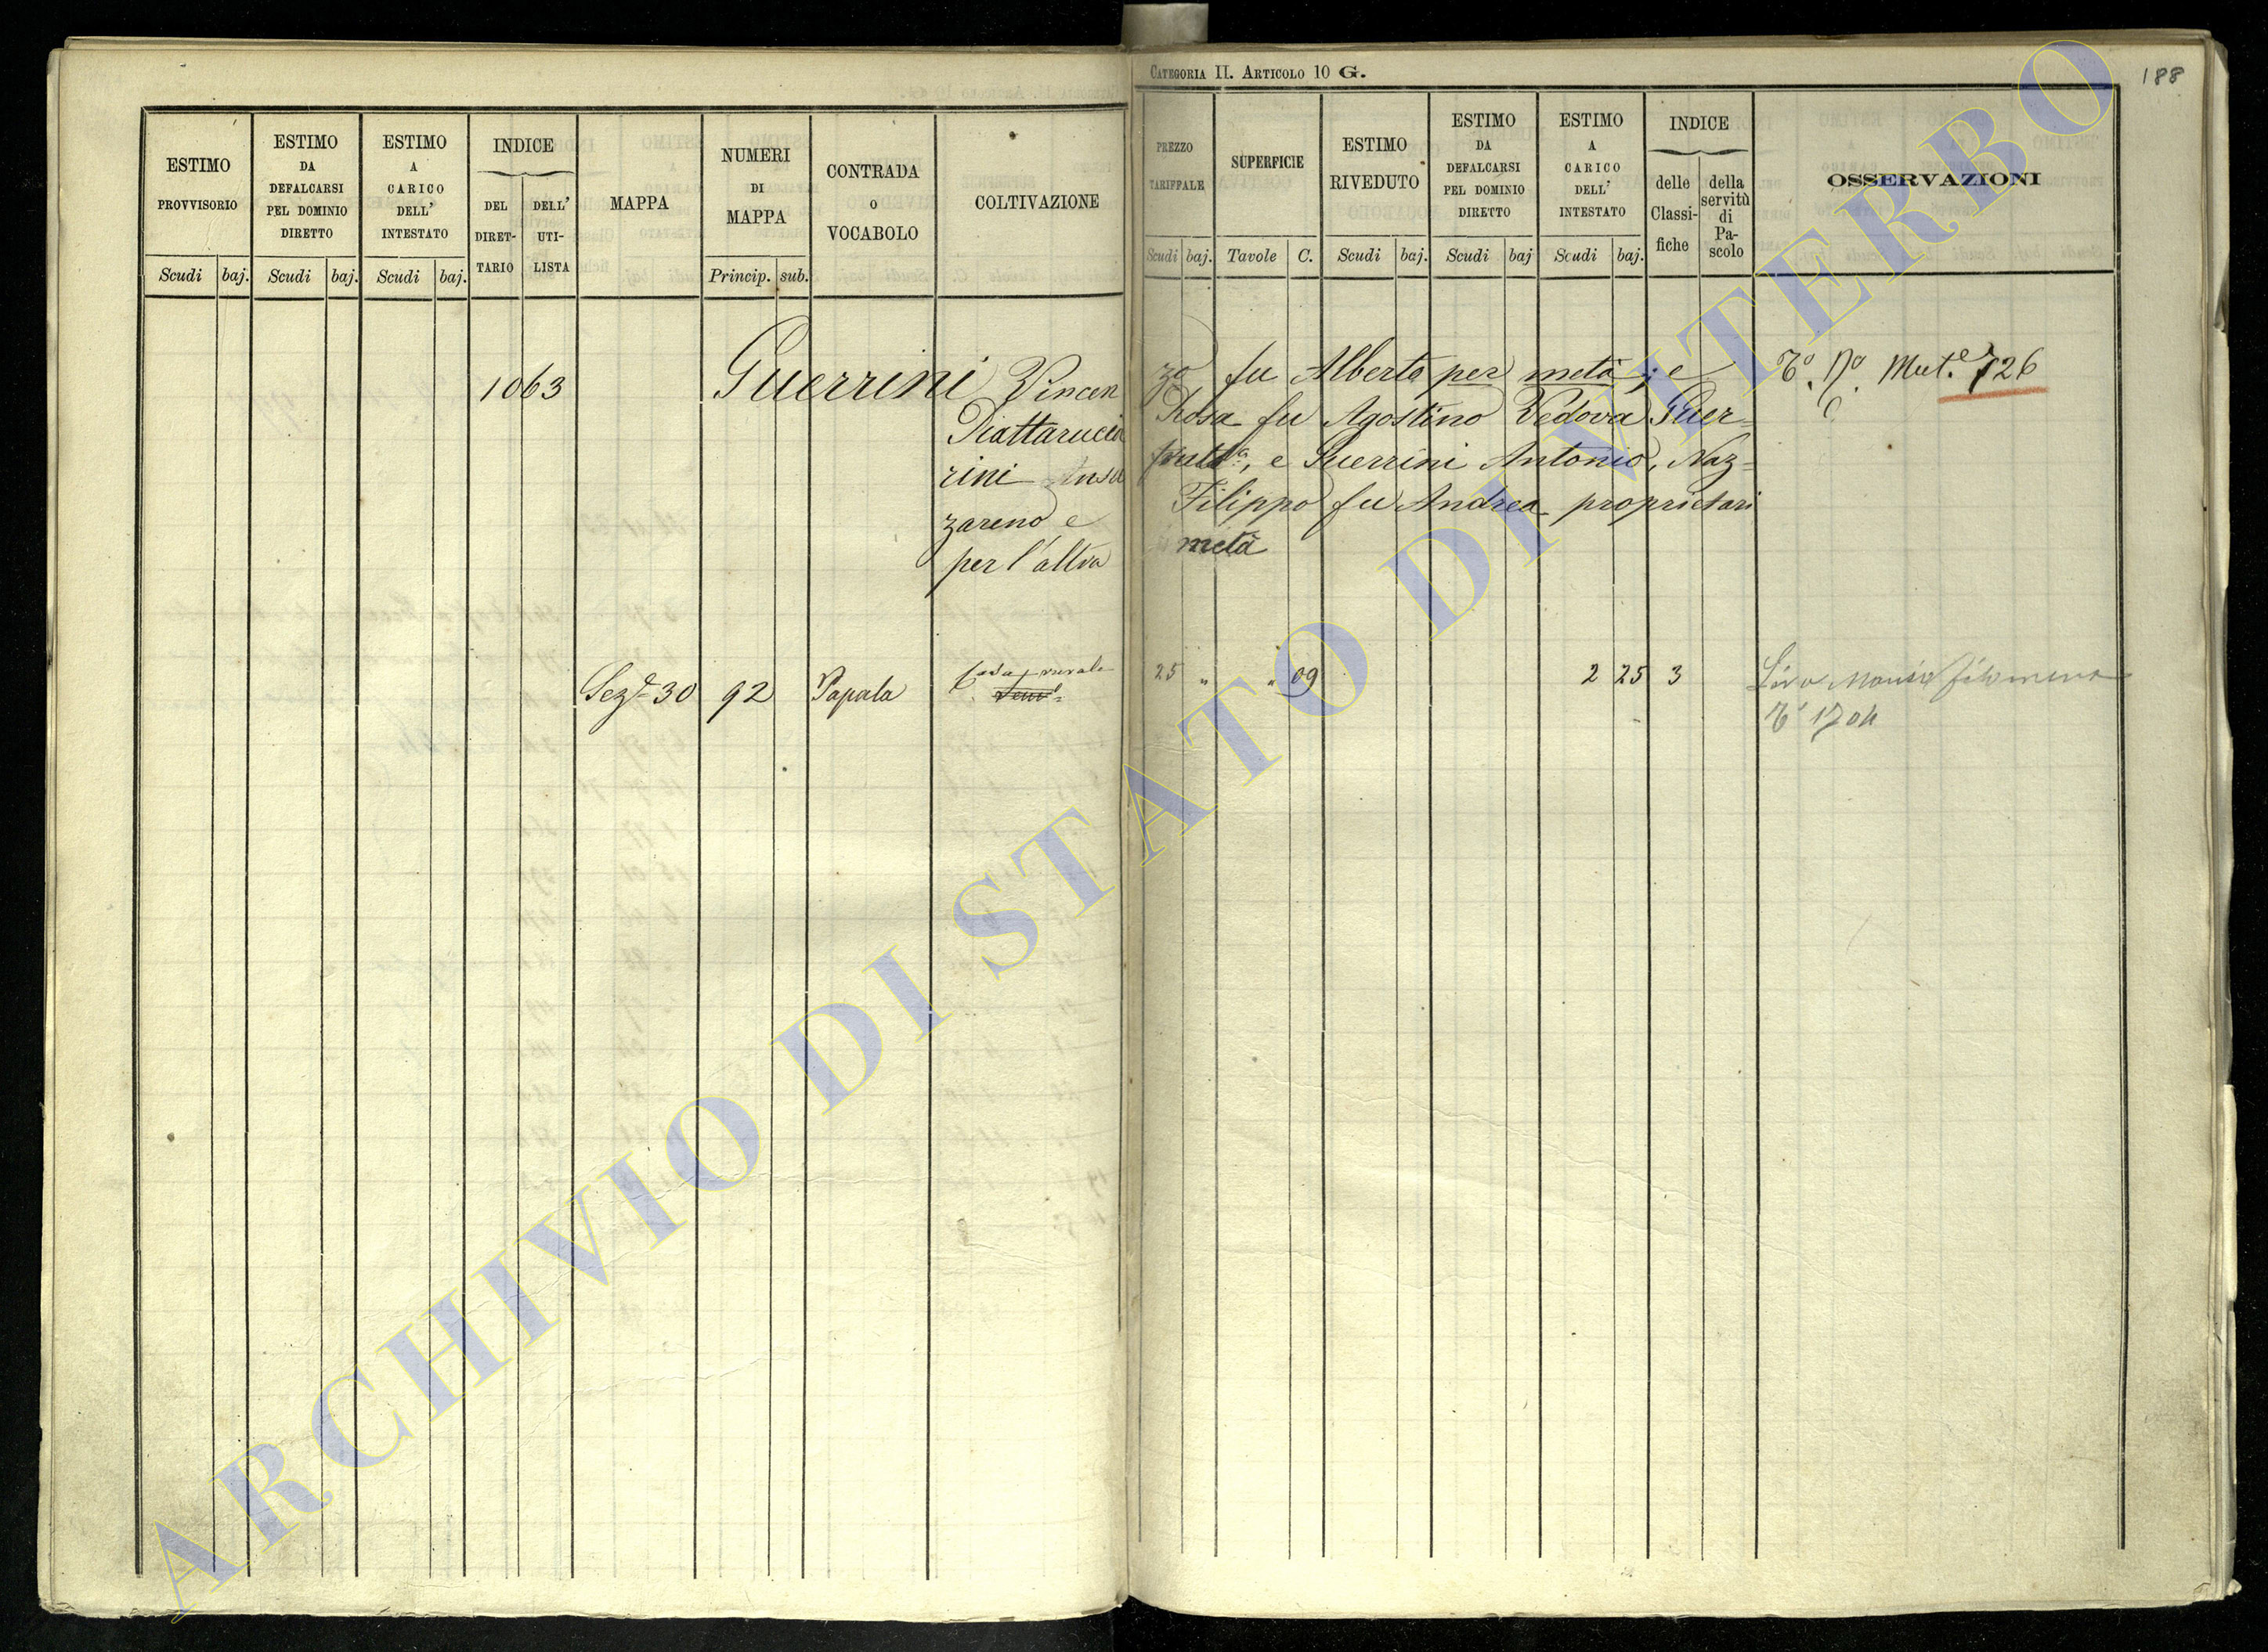 CATEGORIA II. ARTICOLO 10 G.
188
ESTIMO PROVVISORIO
Scudi baj.
ESTIMO DA DEFALCARSI PEL DOMINIO DIRETTO
Scudi baj.
ESTIMO A CARICO DELL' INTESTATO
Scudi baj.
INDICE
DEL DIRET-TARIO
DELL' UTI-LISTA
MAPPA
NUMERI DI MAPPA
Princip. sub.
CONTRADA O VOCABOLO
COLTIVAZIONE
PREZZO TARIFFALE
Scudi baj.
SUPERFICIE
Tavole C.
ESTIMO RIVEDUTO
Scudi baj.
ESTIMO DA DEFALCARSI PEL DOMINIO DIRETTO
Scudi baj
ESTIMO A CARICO DELL' INTESTATO
Scudi baj.
INDICE
delle Classi-fiche
della servitù di Pa-scolo
OSSERVAZIONI
1063 Guerrini Vincen zo fu Alberto per metà; e Mut.e 726
Piattaruccia Rosa fu Agostino Vedova Guer=
rini e Guerrini Antonio, Naz=
zareno e Filippo fu Andrea proprietari
per l'altra metà
Sez.e 30 92 Papala Casa rurale 25 " " 09 2 25 3
1704
ARCHIVIO DI STATO DI VITERBO